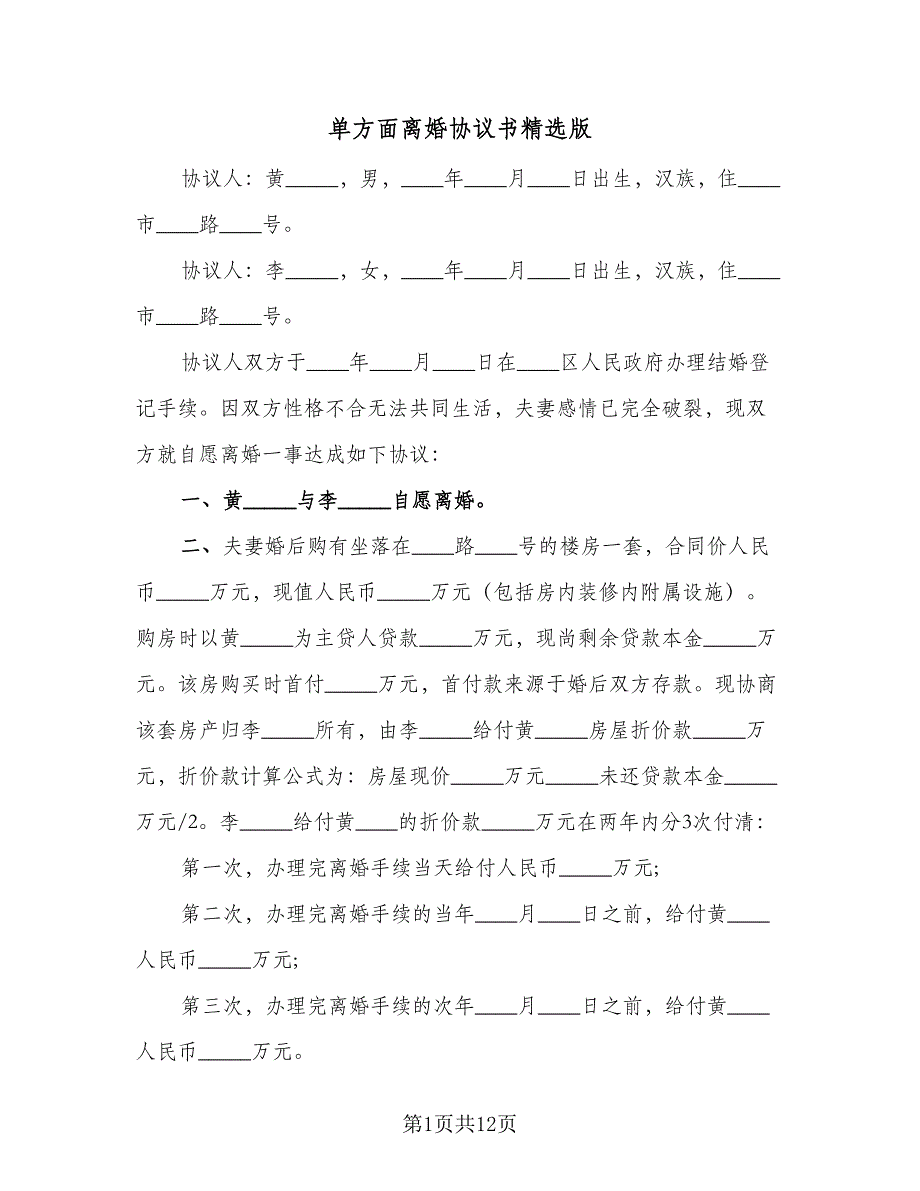 单方面离婚协议书精选版
协议人：黄_____，男，____年____月____日出生，汉族，住____
市____路____号。
协议人：李_____，女，____年____月____日出生，汉族，住____
市____路____号。
协议人双方于____年____月____日在____区人民政府办理结婚登
记手续。因双方性格不合无法共同生活，夫妻感情已完全破裂，现双
方就自愿离婚一事达成如下协议：
一、黄_____与李_____自愿离婚。
二、夫妻婚后购有坐落在____路____号的楼房一套，合同价人民
币_____万元，现值人民币_____万元（包括房内装修内附属设施）。
购房时以黄_____为主贷人贷款_____万元，现尚剩余贷款本金_____万
元。该房购买时首付_____万元，首付款来源于婚后双方存款。现协商
该套房产归李_____所有，由李_____给付黄_____房屋折价款_____万
元，折价款计算公式为：房屋现价_____万元_____未还贷款本金_____
万元/2。李_____给付黄____的折价款_____万元在两年内分3次付清：
第一次，办理完离婚手续当天给付人民币_____万元;
第二次，办理完离婚手续的当年____月____日之前，给付黄____
人民币_____万元;
第三次，办理完离婚手续的次年____月____日之前，给付黄____
人民币_____万元。
第1页共12页